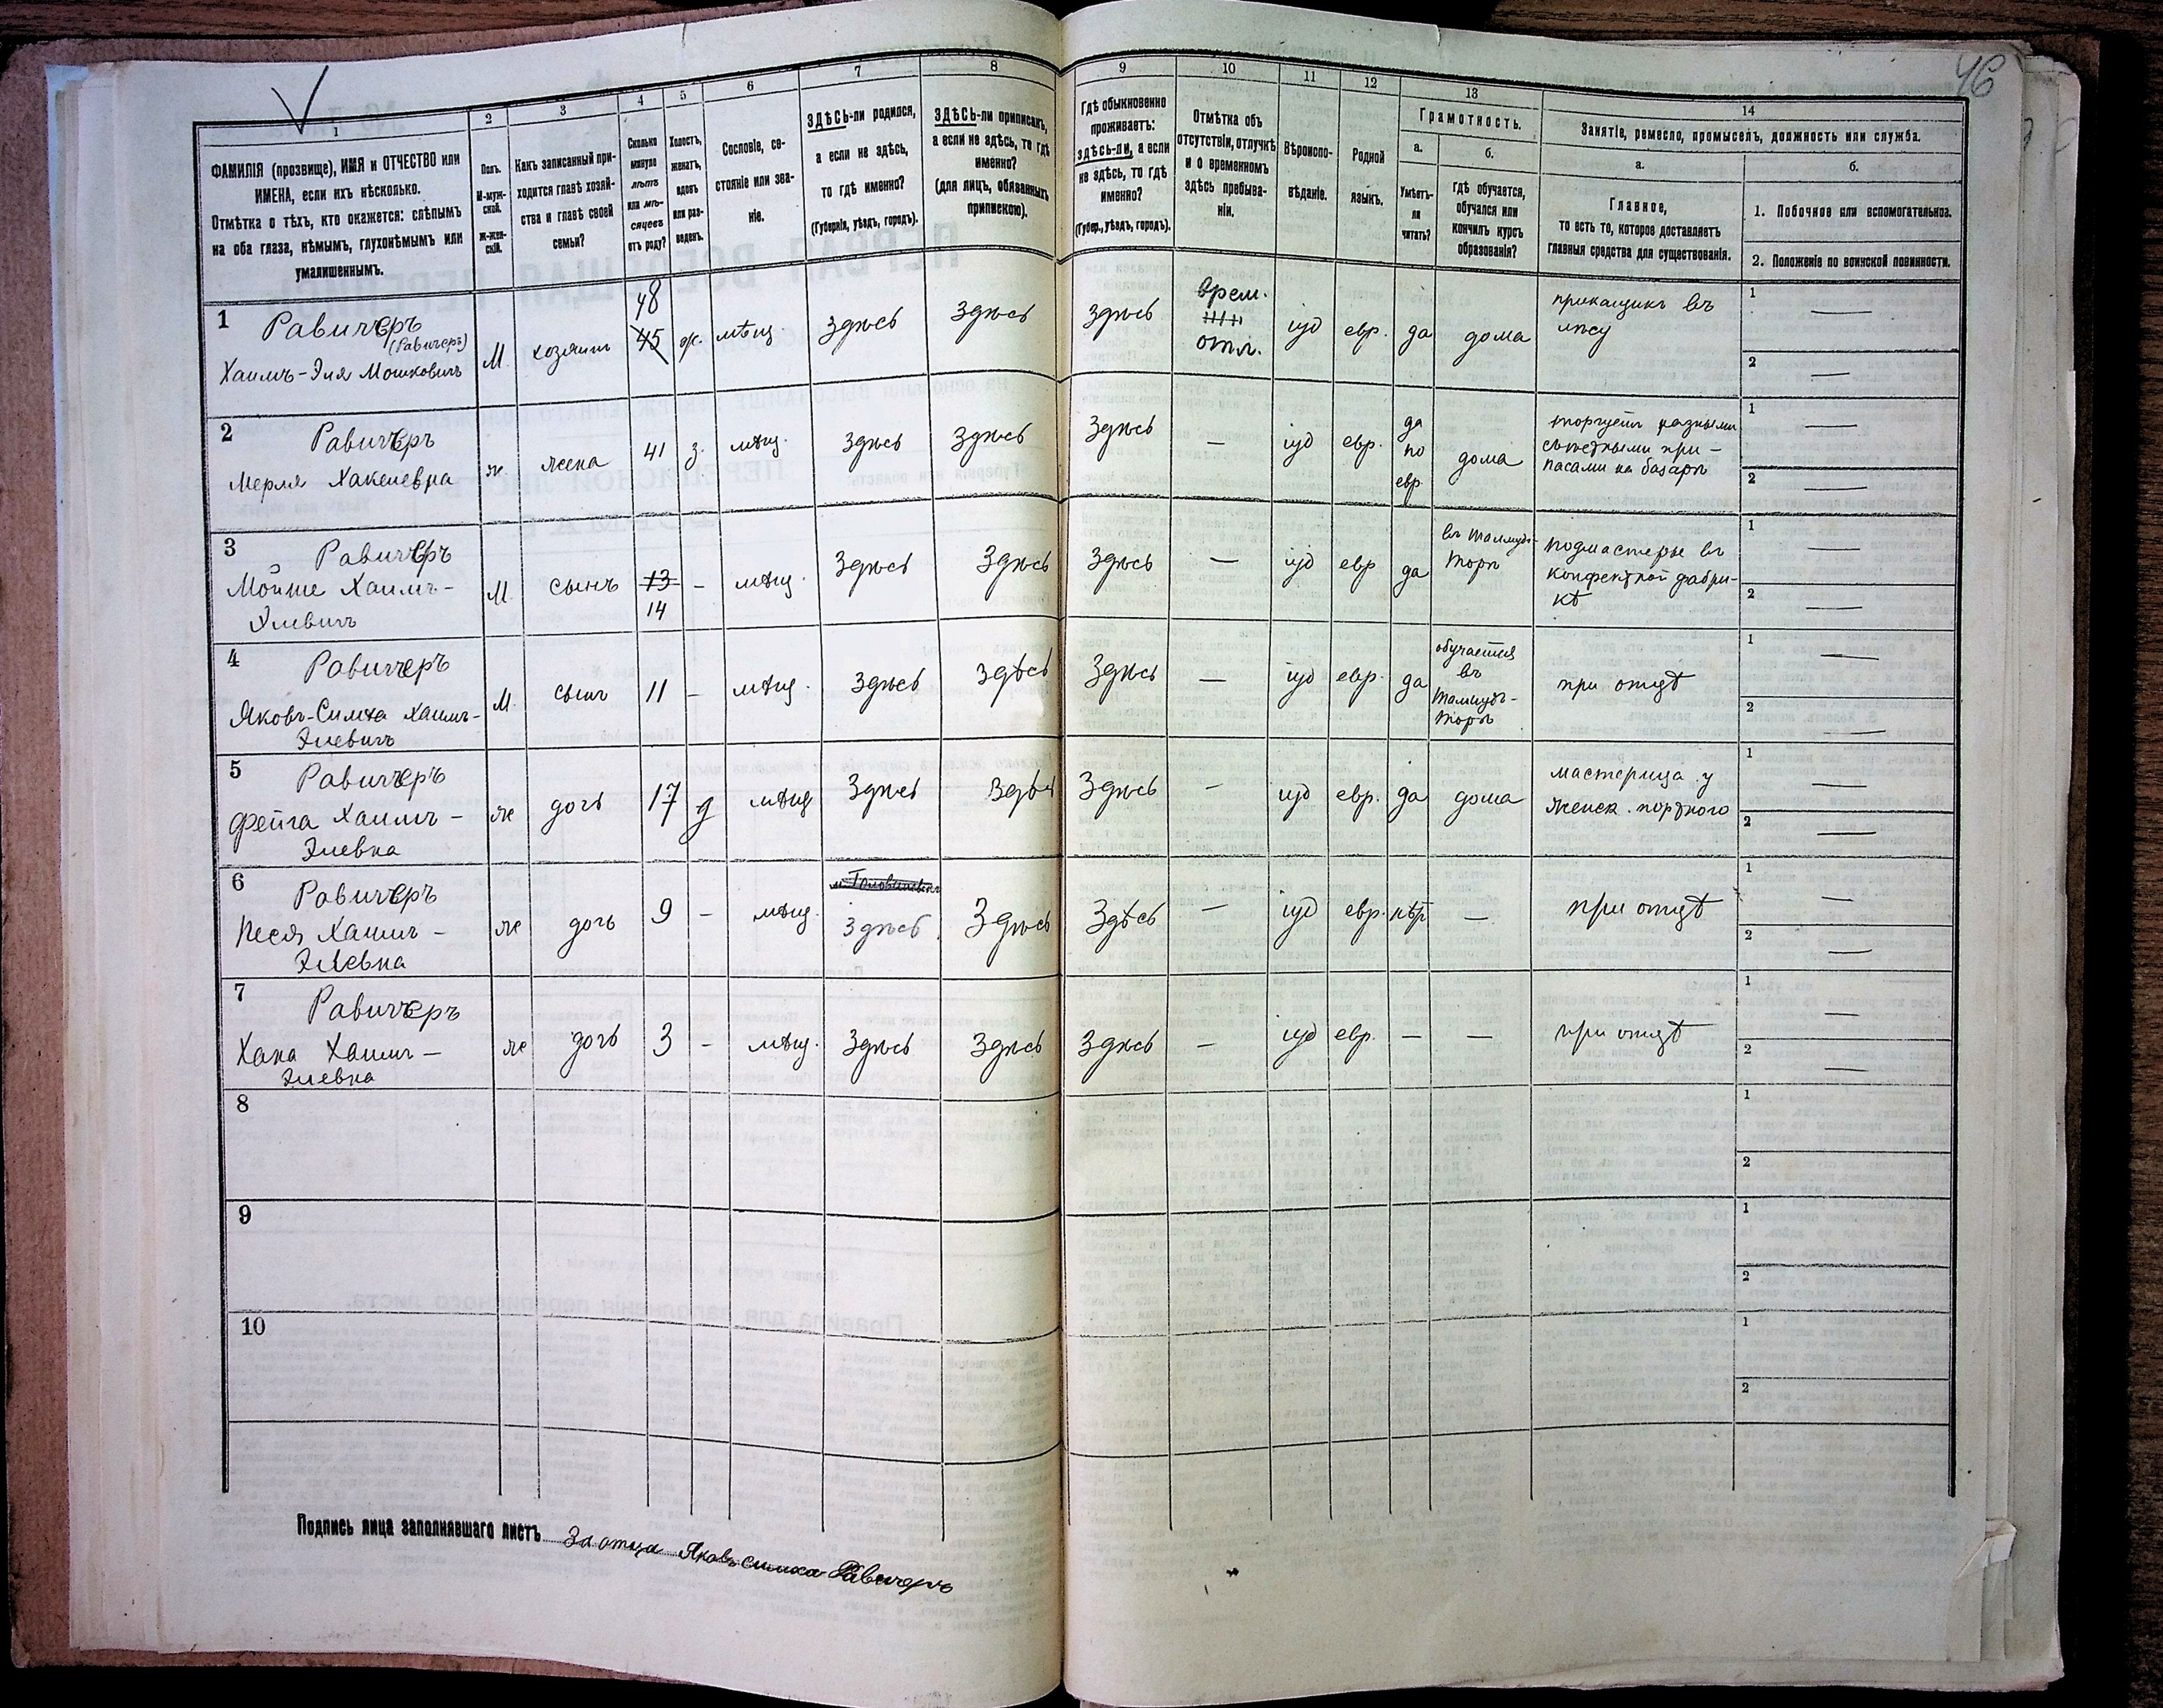 46
1
2
3
4
5
6
7
8
9
10
11
12
13
14
ФАМИЛІЯ (прозвище), ИМЯ и ОТЧЕСТВО или
ИМЕНА, если ихъ нѣсколько.
Отмѣтка о тѣхъ, кто окажется: слѣпымъ
на оба глаза, нѣмымъ, глухонѣмымъ или
умалишеннымъ.
Полъ.
М-муж-
ской.
Ж-жен-
скій.
Какъ записанный при-
ходится главѣ хозяй-
ства и главѣ своей
семьи?
Сколько
минуло
лѣтъ
или мѣ-
сяцевъ
отъ роду?
Холостъ,
женатъ,
вдовъ
или раз-
веденъ.
Сословіе, со-
стояніе или зва-
ніе.
ЗДѢСЬ-ли родился,
а если не здѣсь,
то гдѣ именно?
(Губернія, уѣздъ, городъ).
ЗДѢСЬ-ли приписанъ,
а если не здѣсь, то гдѣ
именно?
(для лицъ, обязанныхъ
припискою).
Гдѣ обыкновенно
проживаетъ:
здѣсь-ли, а если
не здѣсь, то гдѣ
именно?
(Губер., уѣздъ, городъ).
Отмѣтка объ
отсутствіи, отлучкѣ
и о временномъ
здѣсь пребыва-
ніи.
Вѣроиспо-
вѣданіе.
Родной
языкъ.
Грамотность.
а.
Умѣетъ-
ли
читать?
б.
Гдѣ обучается,
обучался или
кончилъ курсъ
образованія?
Занятіе, ремесло, промыселъ, должность или служба.
а.
Главное,
то есть то, которое доставляетъ
главныя средства для существованія.
б.
1. Побочное или вспомогательное.
2. Положеніе по воинской повинности.
1 Равичеръ
(Равичеръ)
Хаимъ-Эля Мошковичъ
М. хозяинъ 48 45 ж. мѣщ. здѣсь здѣсь здѣсь
врем.
отл.
іуд евр. да дома
прикащикъ въ
лѣсу
1 —
2 —
2 Равичеръ
Мерля
ж жена 41 з. мѣщ. здѣсь здѣсь здѣсь — іуд евр.
да
по
евр.
дома
торгуетъ разными
съестными при-
пасами на базарѣ
1 —
2 —
3 Равичеръ
Мойше Хаимъ-
Элевичъ
М. сынъ 13 14 - мѣщ. здѣсь здѣсь здѣсь — іуд евр да
въ Талмудъ-
Торѣ
подмастерье въ
конфектной фабри-
кѣ
1 —
2 —
4 Равичеръ
Яковъ-Симха Хаимъ-
Элевичъ
М. сынъ 11 - мѣщ. здѣсь здѣсь здѣсь — іуд евр. да
обучается
въ
Талмудъ-
Торѣ
при отцѣ
1 —
2 —
5 Равичеръ
Фейга Хаимъ-
Элевна
ж дочь 17 д мѣщ здѣсь здѣсь здѣсь - іуд евр. да дома
мастерица у
женск. портного
1 —
2 —
6 Равичеръ
Песя Хаимъ-
Элевна
ж дочь 9 - мѣщ.
здѣсь здѣсь здѣсь - іуд евр. нѣт —
при отцѣ
1 —
2 —
7 Равичеръ
Хана Хаимъ-
Элевна
ж дочь 3 - мѣщ. здѣсь здѣсь здѣсь - іуд евр. — —
при отцѣ
1 —
2 —
8
1
2
9
1
2
10
1
2
Подпись лица заполнявшаго листъ За отца Яковъ Симха Равичеръ